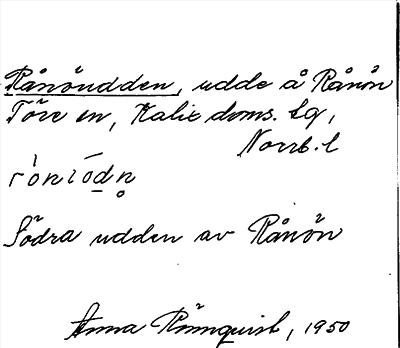 Rånöudden, udde å Rånön
Töre sn, Kalix doms. tg,
Norrb. l
Södra udden av Rånön
Anna Rönnquist, 1950